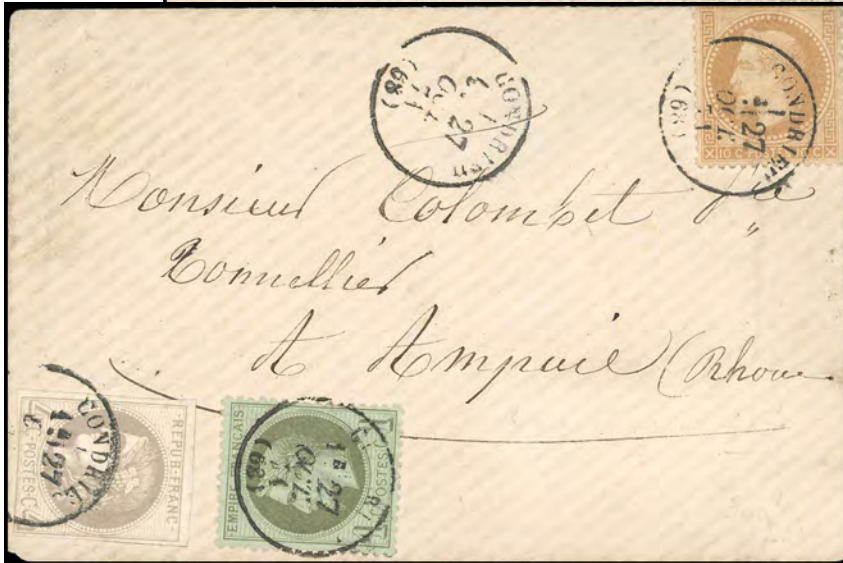 CONDRIEU
1E
27
OCT.
71
(68)
CONDRIEU
1E
27
OCT.
71
(68)
10 C. POSTES 10 C.
Monsieur Colombet
Tonnellier
A Ampuis (Rhone
CONDRIE
1E
27
REPUB. FRANC.
4 C. POSTES. C. 4
1E
27
OCT.
71
(68)
EMPIRE FRANÇAIS
POSTES